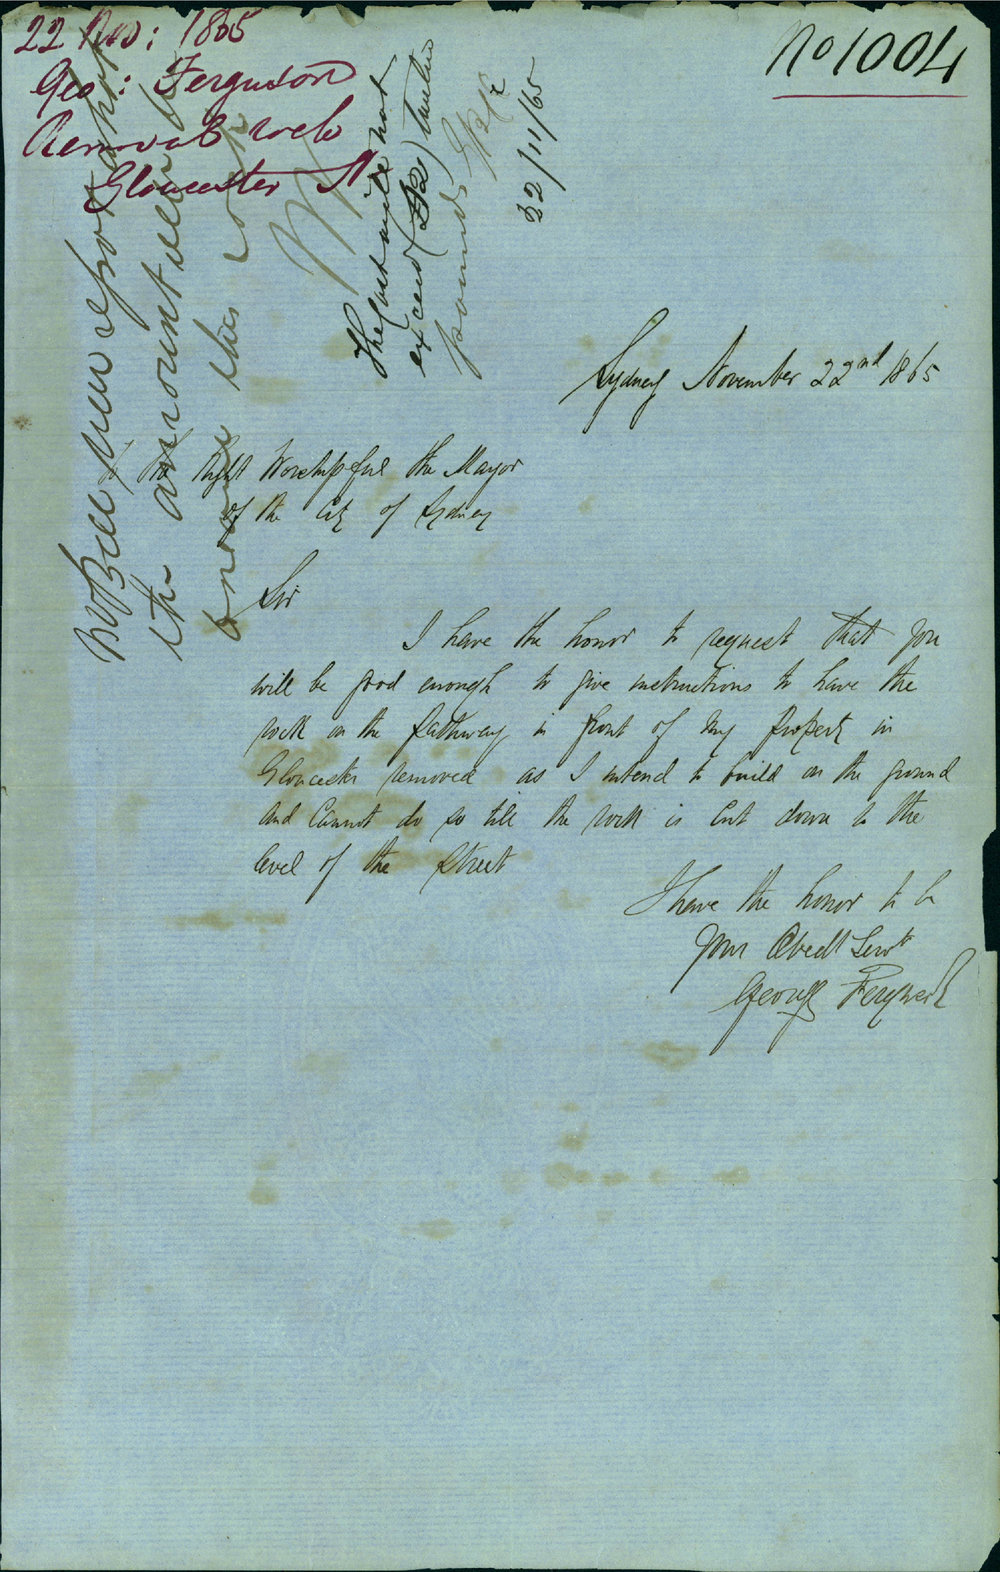 22 Nov: 1865
Geo: Ferguson
Removal rock
Gloucester St
No 1004
Mr Bell will report what
the amount will be
this work
The Cost will not
exceed (£12) twelve
pounds
22/11/65
Sydney November 22nd 1865
To the Right Worshipful the Mayor
of the City of Sydney
Sir
I have the honor to request that you
will be good enough to give instructions to have the
rock on the pathway in front of my property in
Gloucester removed as I intend to build on the ground
and Cannot do so till the rock is Cut down to the
level of the Street
I have the honor to be
Your Obedt Servt
George Ferguson